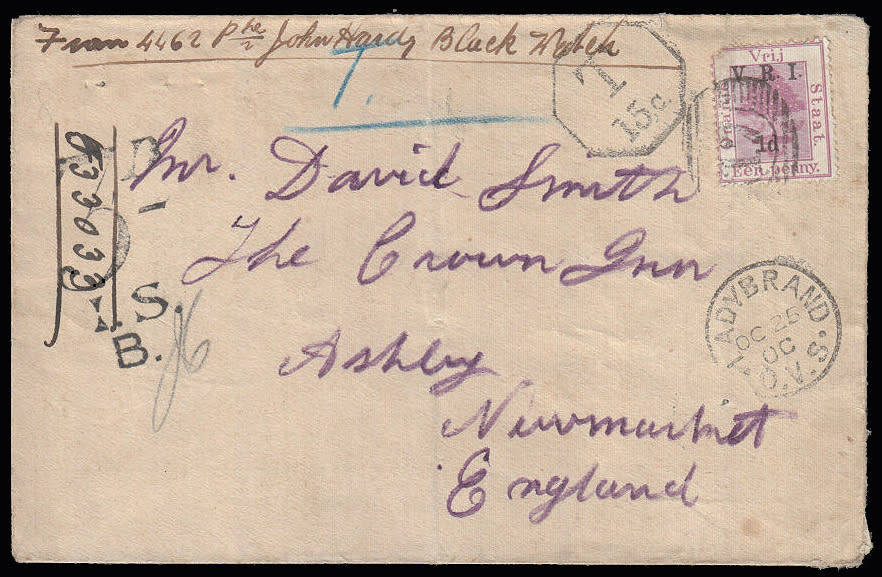 From 4462 Pte John Hardy Black Watch
T
15c
Vrij
V. R. I.
Staat.
1d
Een penny.
Mr. David Smith
The Crown Inn
Ashley
Newmarket
England
S.
B.
LADYBRAND
OC 25
OC
O.V.S.